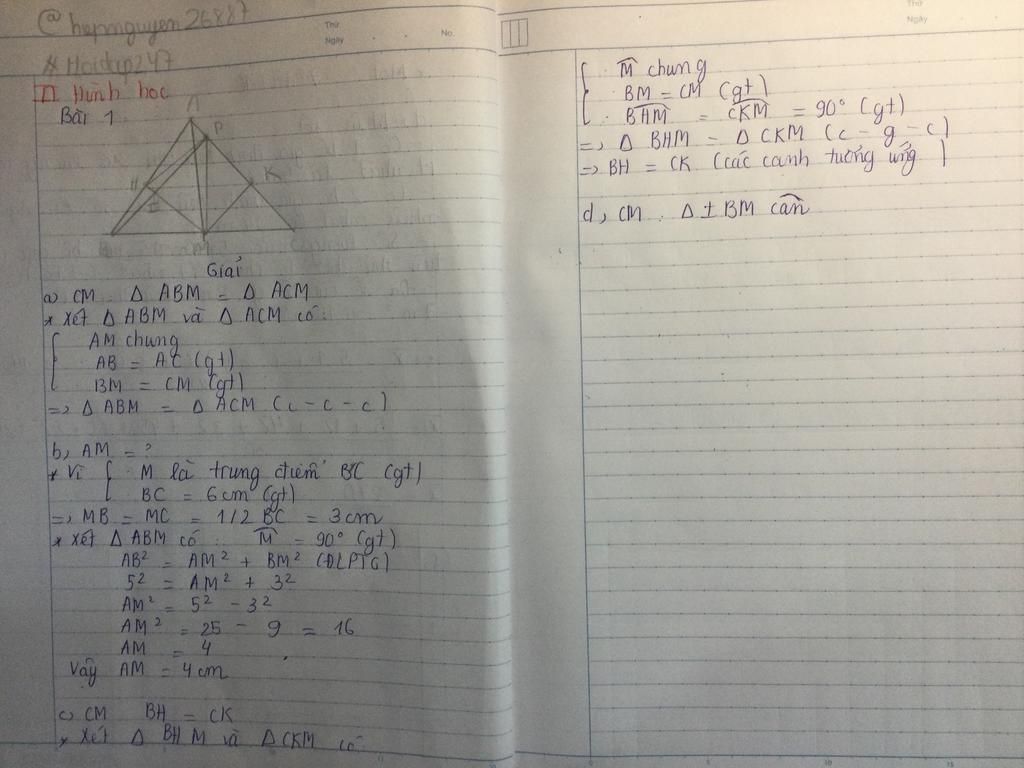 @hiepnguyen26887
#Hoidap247
II Hình học
Bài 1
A
P
H
K
I
B
M
C
Giải
a) CM: Δ ABM = Δ ACM
* Xét Δ ABM và Δ ACM có:
AM chung
AB = AC (gt)
BM = CM (gt)
=> Δ ABM = Δ ACM (c-c-c)
b, AM = ?
* Vì { M là trung điểm BC (gt)
BC = 6cm (gt)
=> MB = MC = 1/2 BC = 3cm
* Xét Δ ABM có: M̂ = 90° (gt)
AB² = AM² + BM² (ĐLPTG)
5² = AM² + 3²
AM² = 5² - 3²
AM² = 25 - 9 = 16
AM = 4
Vậy AM = 4cm
c, CM BH = CK
* Xét Δ BHM và Δ CKM có:
Thứ
Ngày
No.
Thứ
Ngày
M̂ chung
BM = CM (gt)
BHM = CKM = 90° (gt)
=> Δ BHM = Δ CKM (c-g-c)
=> BH = CK (các cạnh tương ứng)
d, CM: Δ IBM cân